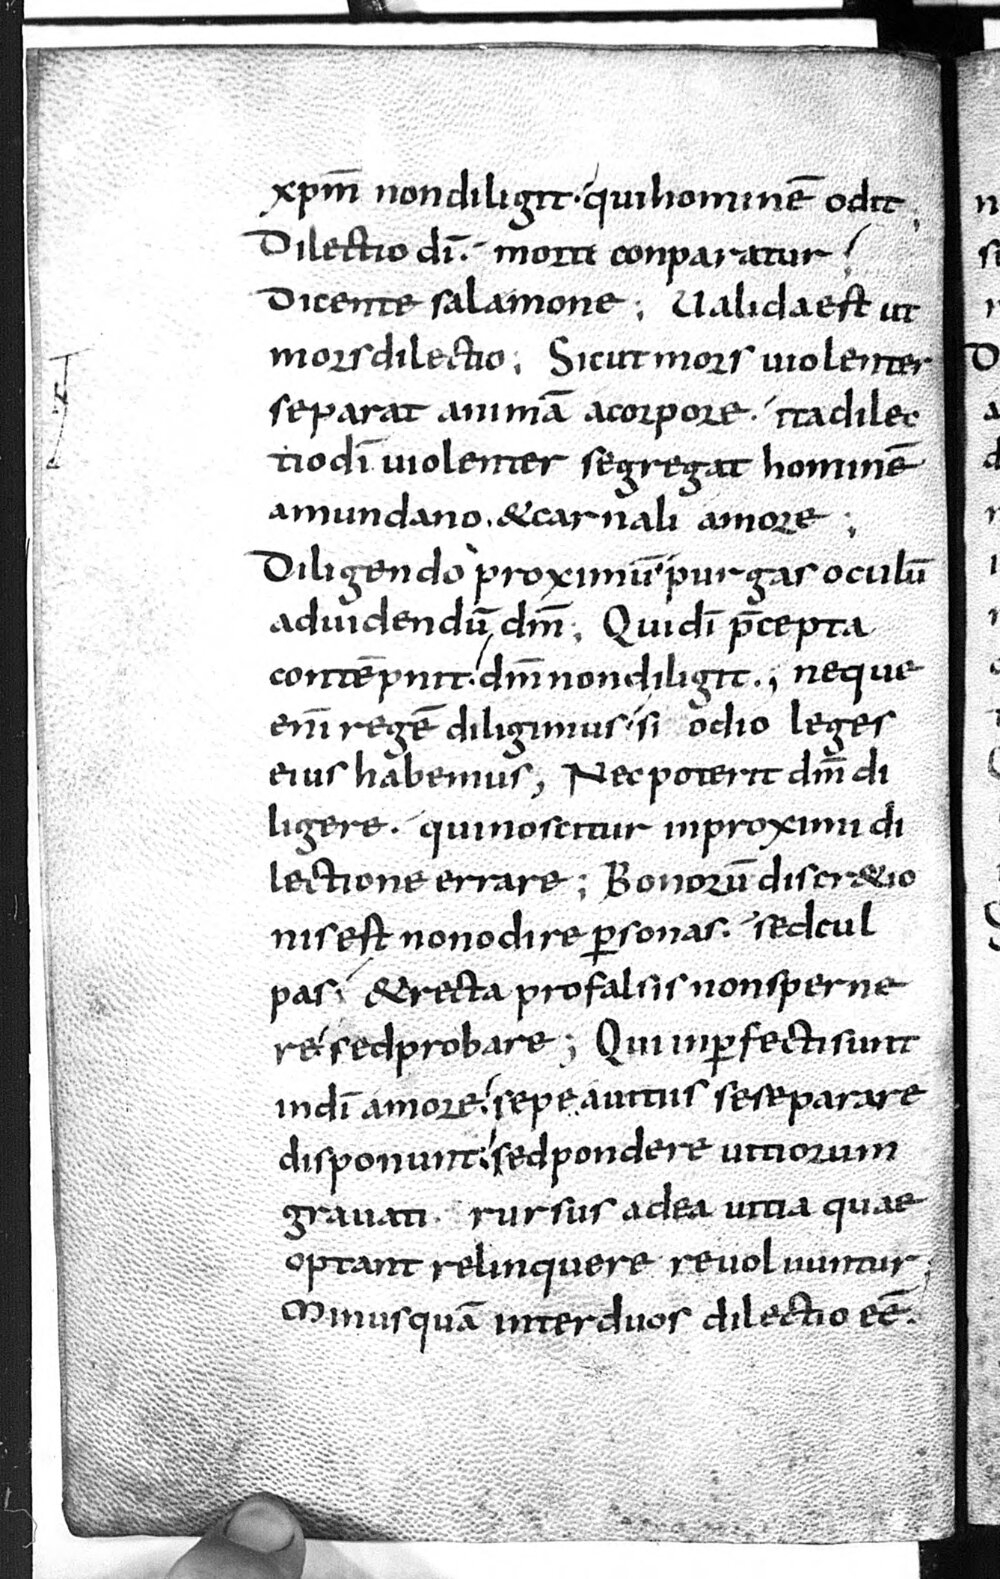 xp̄m̄ nondiligit· quihominē odit;
Dilectio dī· morti conparatur
Dicente salamone; Ualidaest ut
morsdilectio; Sicutmors uiolenter
separat animā acorpore· itadilec
tiodī uiolenter segregat hominē
amundano· &carnali amore;
Diligendo proximū purgas oculū
aduidendū dm̄; Quidī p̄cepta
contēpnit· dm̄nondiligit·; neque
enī regē diligimus· si odio leges
eius habemus; Necpoterit dm̄ di
ligere· quinoscitur inproximi di
lectione errare; Bonorū discr&io
nisest nonodire ꝑsonas· sedcul
pas· &recta profalsis nonsperne
re· sedprobare; Qui inꝑfectisunt
indī amore· sepe auitiis seseparare
disponunt· sedpondere uitiorum
grauati· rursus adea uitia quae
optant relinquere reuoluuntur;
Minusquā interduos dilectio eē·